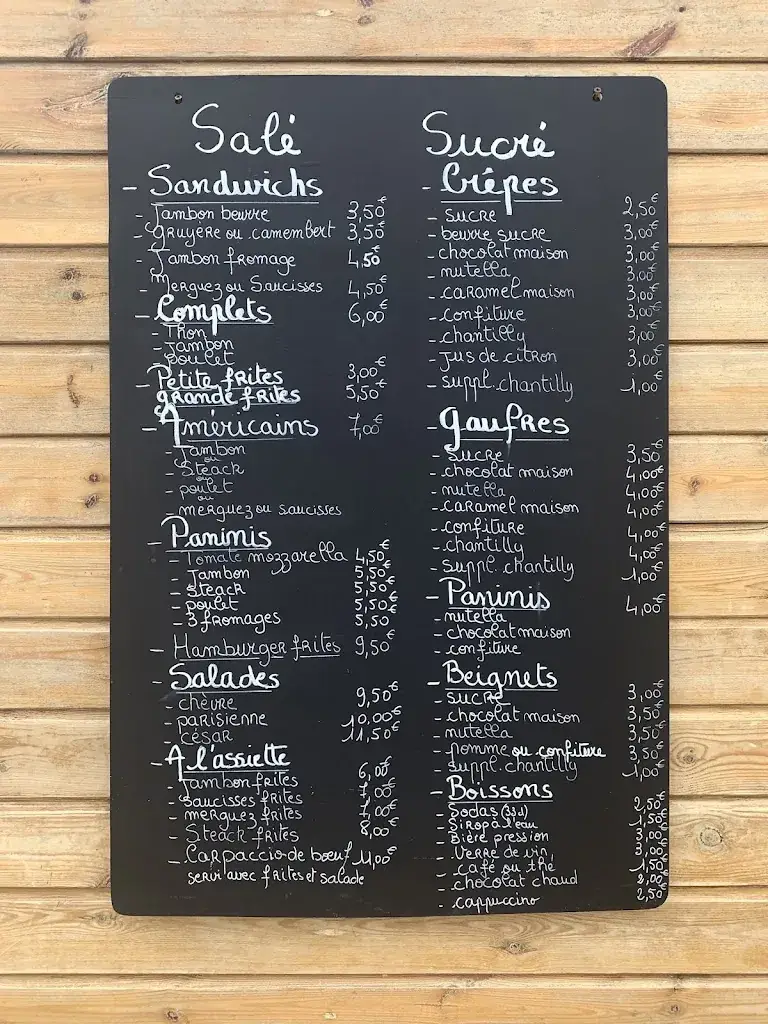 Salé
- Sandwichs
- Jambon beurre 3,50€
- gruyère ou camembert 3,50€
- Jambon fromage 4,50€
- Merguez ou Saucisses 4,50€
- Complets 6,00€
- Thon
- Jambon
- poulet
- Petite frites 3,00€
grande frites 5,50€
- Américains 7,00€
- Jambon
ou
- Steack
ou
- poulet
ou
- merguez ou saucisses
- Paninis
- Tomate mozzarella 4,50€
- Jambon 5,50€
- steack 5,50€
- poulet 5,50€
- 3 fromages 5,50
- Hamburger frites 9,50€
- Salades
- chèvre 9,50€
- parisienne 10,00€
- césar 11,50€
- A l'assiette
- Jambon frites 6,00€
- Saucisses frites 7,00€
- merguez frites 7,00€
- Steack frites 8,00€
- Carpaccio de bœuf 11,00€
servi avec frites et salade
Sucré
- Crêpes
- sucre 2,50€
- beurre sucre 3,00€
- chocolat maison 3,00€
- nutella 3,00€
- caramel maison 3,00€
- confiture 3,00€
- chantilly 3,00€
- jus de citron 3,00€
- suppl. chantilly 1,00€
- gaufres
- sucre 3,50€
- chocolat maison 4,00€
- nutella 4,00€
- caramel maison 4,00€
- confiture 4,00€
- chantilly 4,00€
- suppl. chantilly 1,00€
- Paninis 4,00€
- nutella
- chocolat maison
- confiture
- Beignets
- sucre 3,00€
- chocolat maison 3,50€
- nutella 3,50€
- pomme ou confiture 3,50€
- suppl. chantilly 1,00€
- Boissons
- Sodas (33cl) 2,50€
- Sirop à l'eau 1,50€
- Bière pression 3,00€
- Verre de vin 3,00€
- café ou thé 1,50€
- chocolat chaud 2,00€
- cappuccino 2,50€